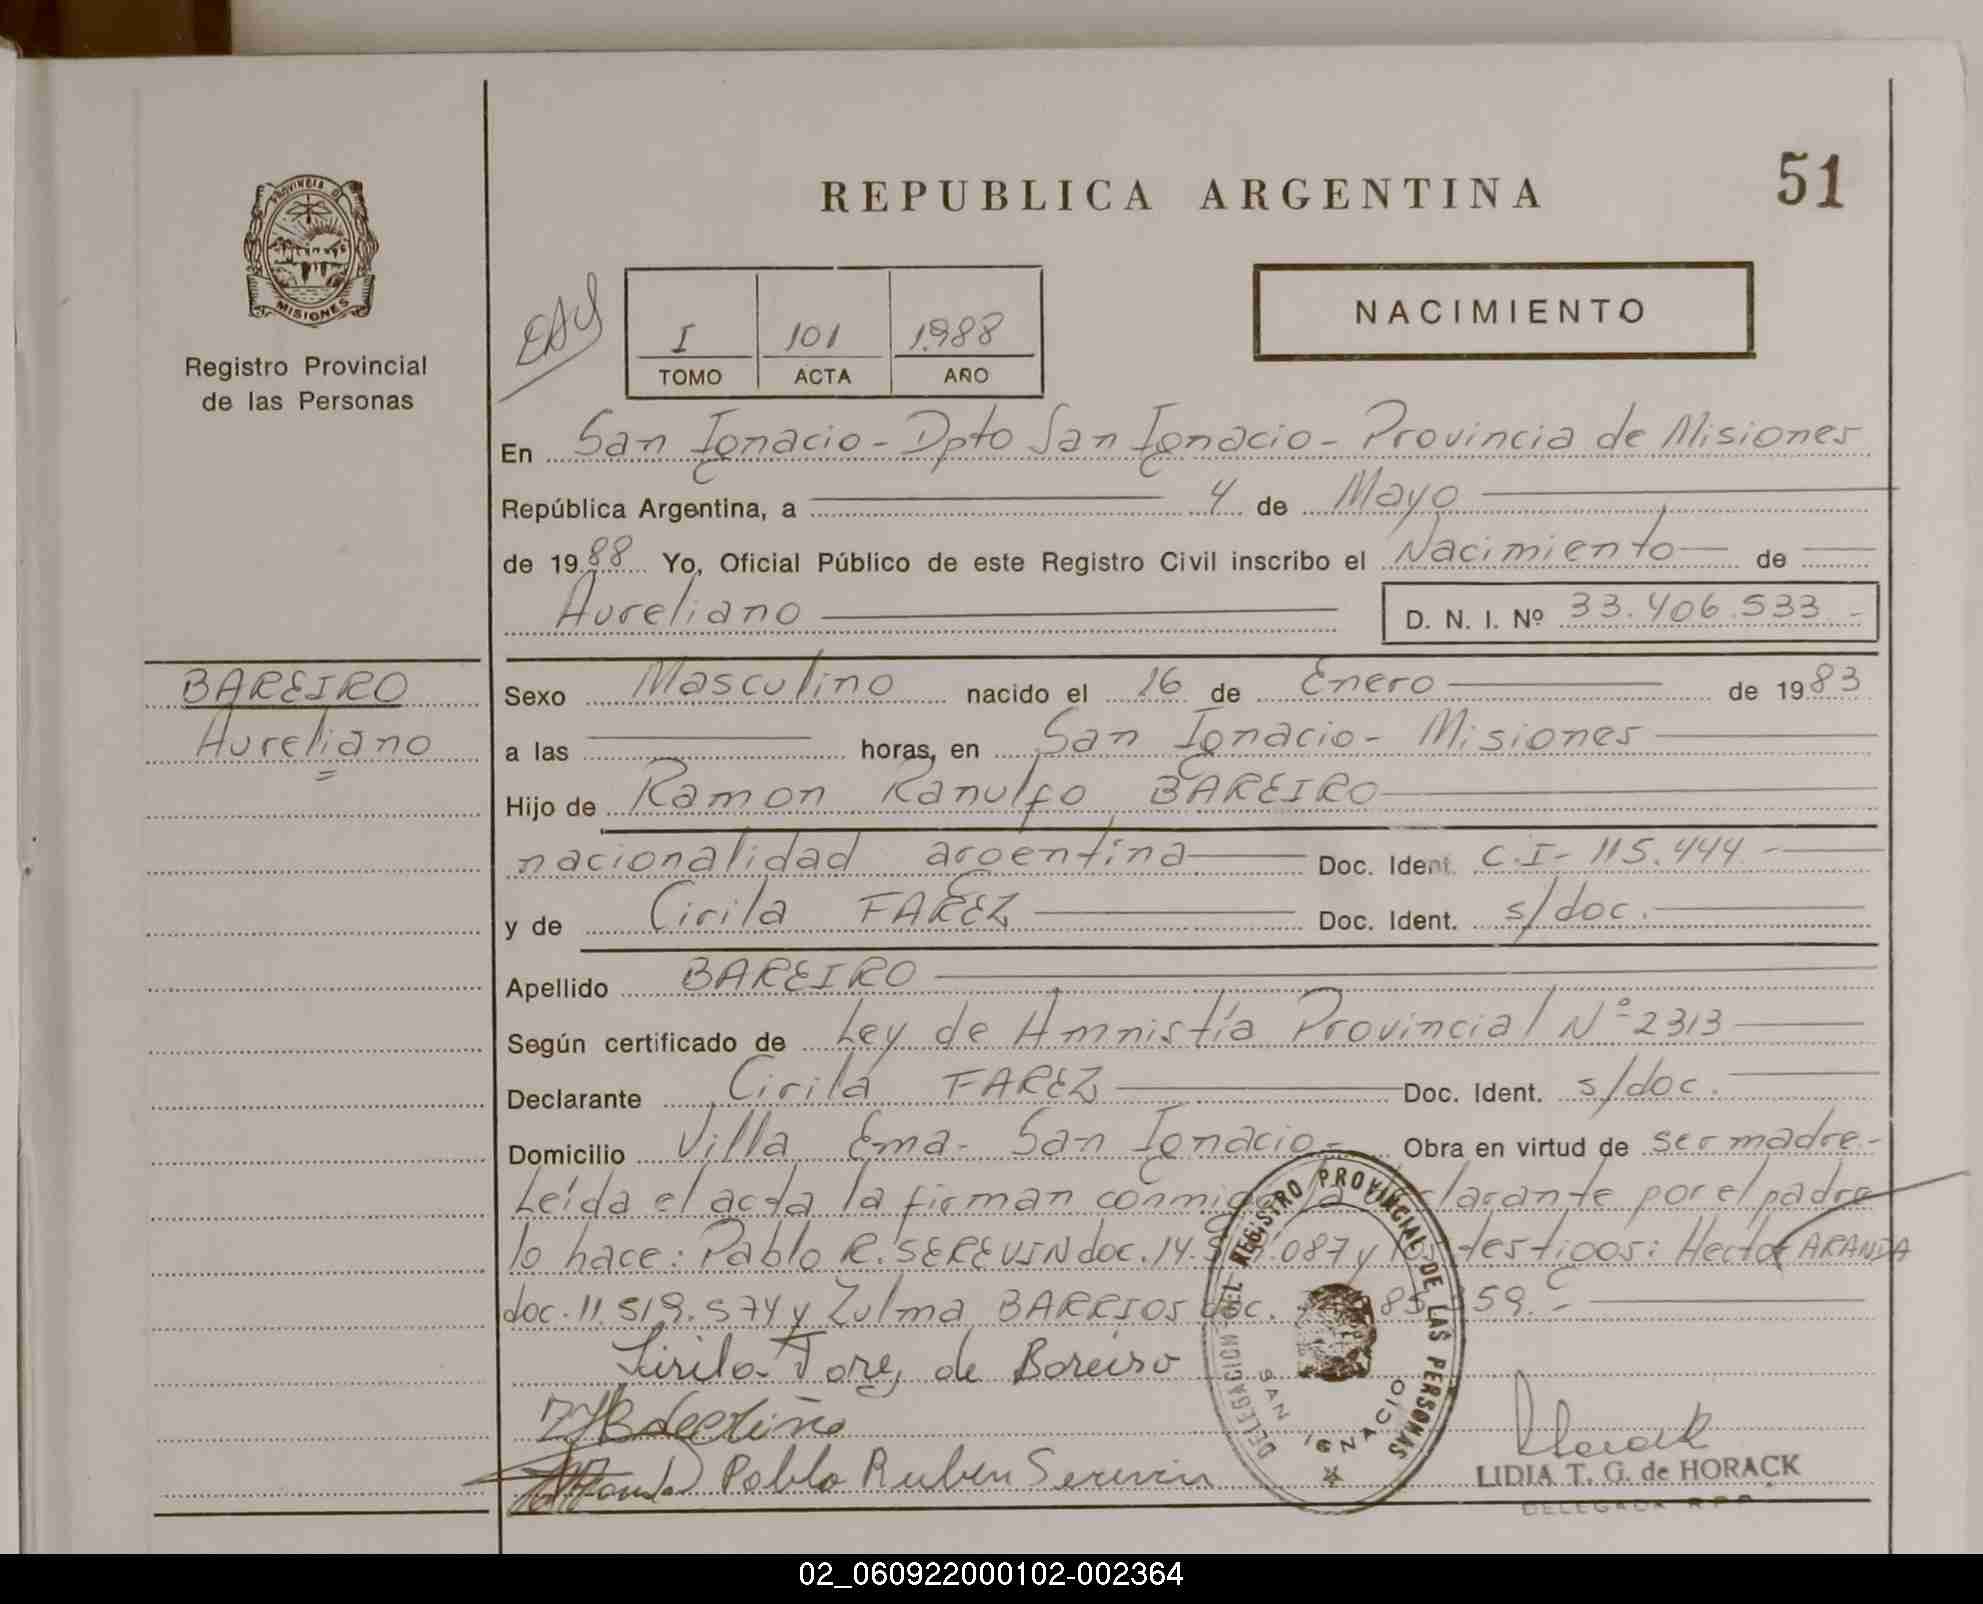 REPUBLICA ARGENTINA
51
PROVINCIA DE
MISIONES
Registro Provincial
de las Personas
NACIMIENTO
I 101 1988
TOMO ACTA AÑO
En San Ignacio - Dpto San Ignacio - Provincia de Misiones
República Argentina, a 4 de Mayo
de 1988 Yo, Oficial Público de este Registro Civil inscribo el Nacimiento de
Aureliano D. N. I. Nº 33.406.533 -
BAREIRO
Aureliano
Sexo Masculino nacido el 16 de Enero de 1983
a las horas, en San Ignacio - Misiones
Hijo de Ramon Ranulfo BAREIRO
nacionalidad argentina Doc. Ident. C.I - 115.444 -
y de Cirila FAREZ Doc. Ident. s/doc.
Apellido BAREIRO
Según certificado de Ley de Amnistía Provincial Nº 2313
Declarante Cirila FAREZ Doc. Ident. s/doc.
Domicilio Villa Ema - San Ignacio - Obra en virtud de ser madre. -
Leída el acta la firman conmigo la por el padre
lo hace: Pablo R. SEREVIN doc. 14. 087 y los testigos: Hector ARANDA
doc. 11.519.574 y Zulma BARRIOS doc. 859. -
Cirila Farez de Bareiro
Pablo Ruben Serevin
DELEGACION DEL REGISTRO PROVINCIAL DE LAS PERSONAS
SAN IGNACIO
LIDIA T. G. de HORACK
DELEGADA R.P.P.
02_060922000102-002364